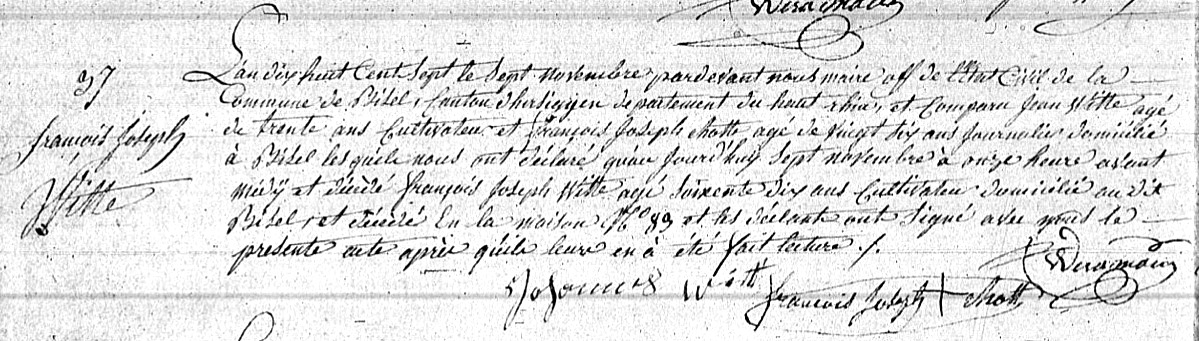 37
françois Joseph
Witte
L'an dix huit Cent Sept le Sept Novembre pardevant nous maire off de l'Etat Civil de la
Commune de Bisel, Canton d'hirsiggen departement du haut rhin, et Comparu Jean Witte agé
de trente ans Cultivateur et françois Joseph Mott agé de vingt Six ans Journalier domicilié
à Bisel lesquels nous ont déclaré qu'au Jourd'huy Sept novembre à onze heure avant
midÿ et décédé françois Joseph Witte agé Soixente dix ans Cultivateur domicilié au dit
Bisel, et décédé En la maison No 83 et les déclarants ont Signé avec nous le
presente acte après qu'ils leurs en à été fait lecture ./.
Johannes Witt
françois Joseph Mott